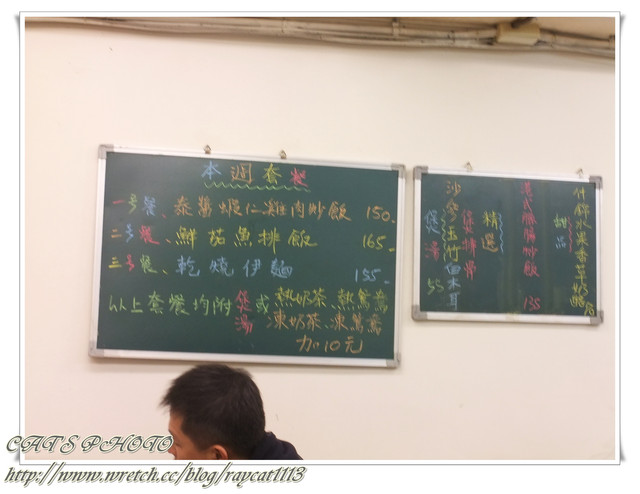 本週套餐
一号餐、泰醬蝦仁雞肉炒飯 150.
二号餐、鮮茄魚排飯 165.
三号餐、乾燒伊麵 155.
以上套餐均附煲湯或熱奶茶、熱鴛鴦
凍奶茶、凍鴛鴦
加10元
什錦水果香草奶酪
甜品
港式臘腸炒飯 135
精選
煲排骨
沙參玉竹白木耳
煲湯 55
CAT'S PHOTO
http://www.wretch.cc/blog/raycat1113